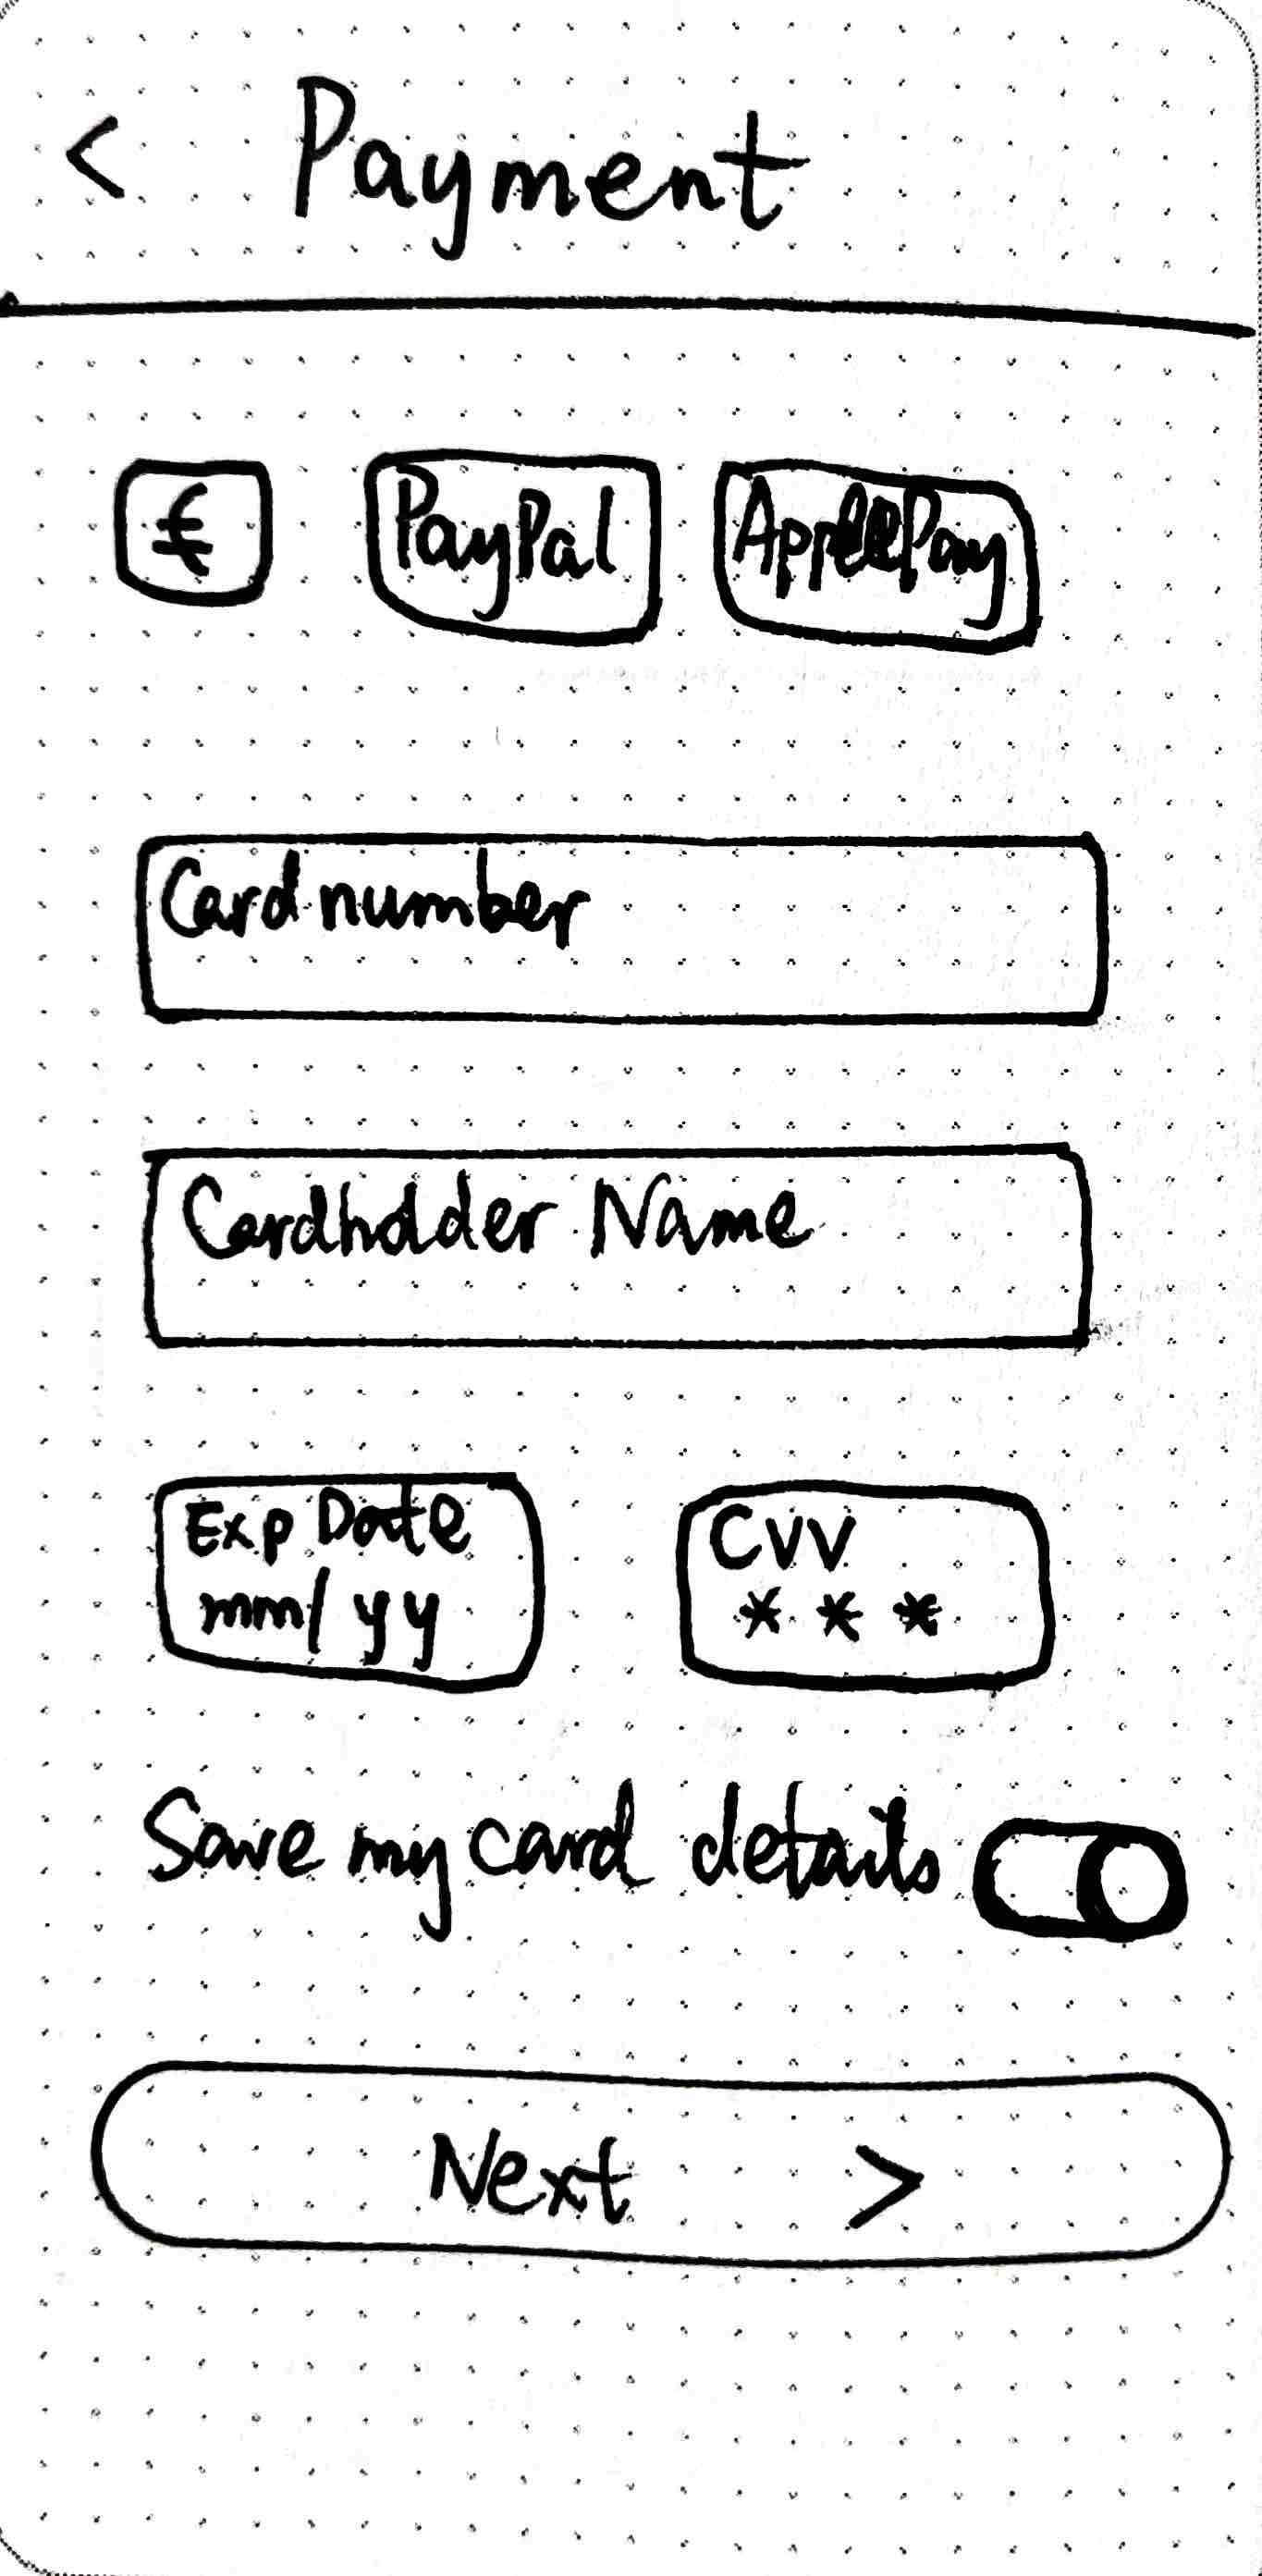 < Payment
€ PayPal ApplePay
Card number
Cardholder Name
Exp Date CVV
mm/yy ***
Save my card details
Next >